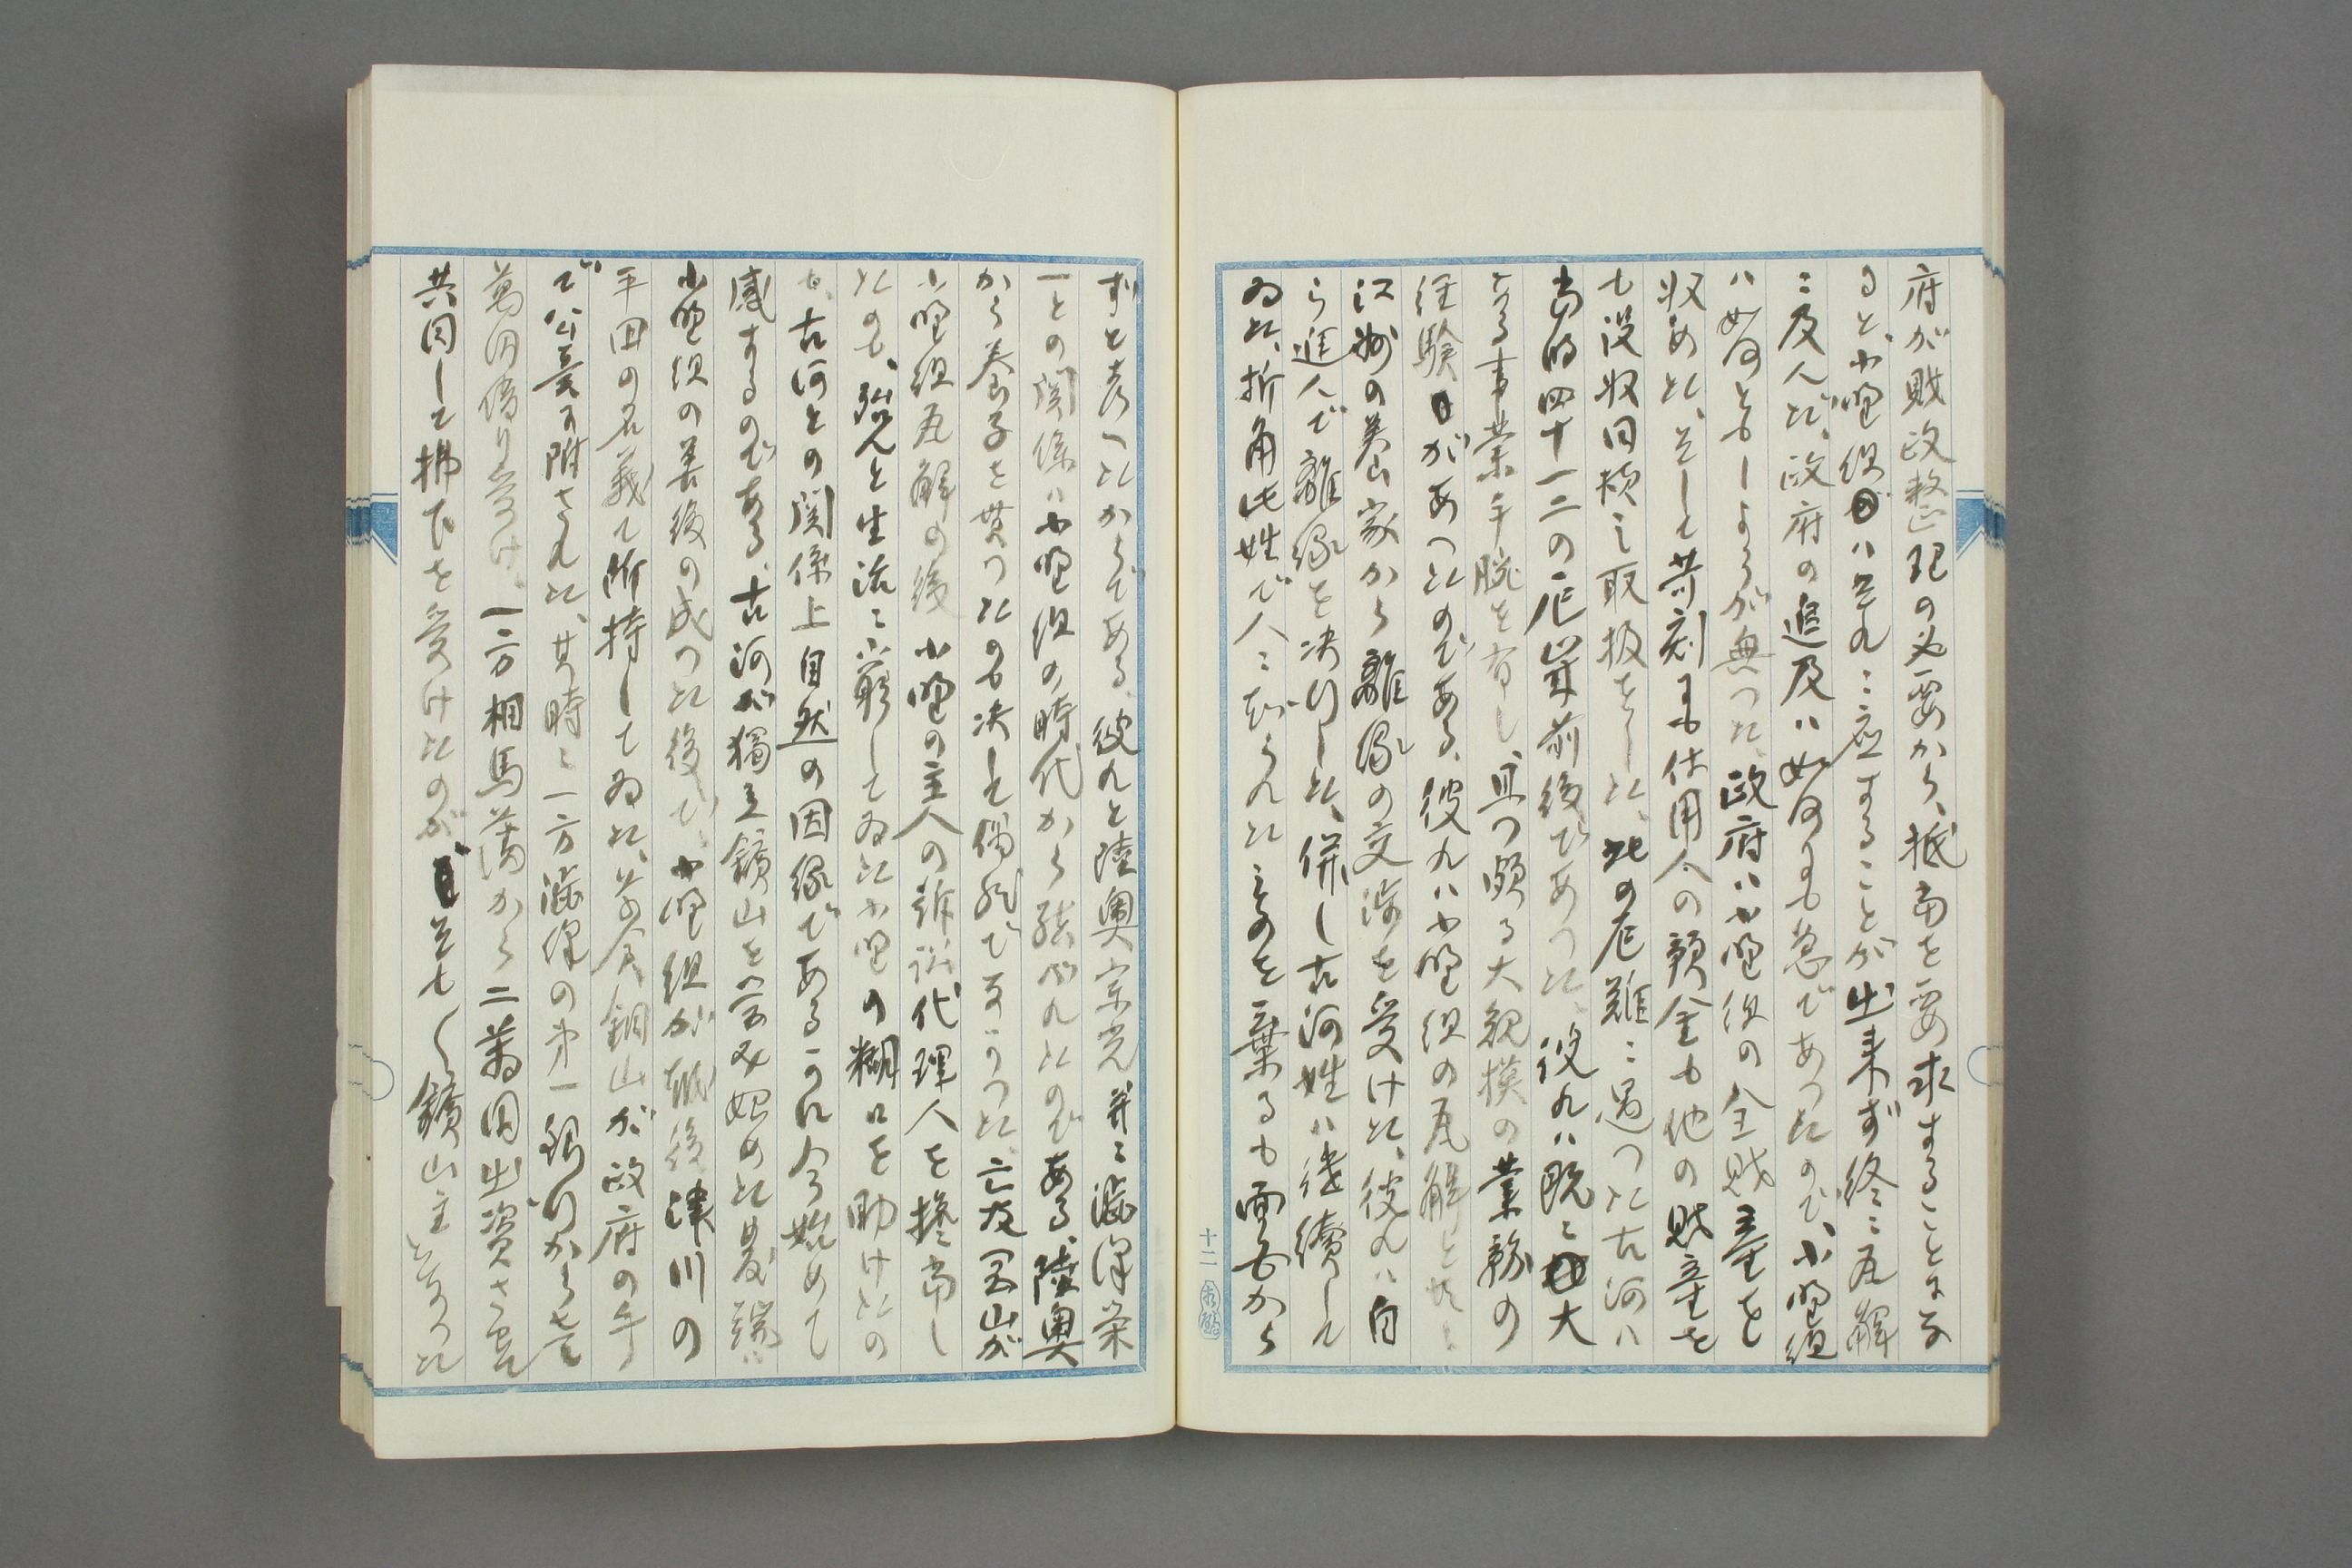 府が財政整理の必要から、抵当を要求することにな
ると、小野組ハ是れニ應することが出来ず終ニ瓦解
ニ及んだ、政府の追及ハ如何にも急であつたので、小野組
ハ如何ともしようが無つた、政府ハ小野組の全財産を
収めた、そして苛刻にも使用人の預金も他の財産を
も没収同様之取扱をした、此の厄難ニ遇つた古河ハ
当時四十一二の厄年前後であつた、彼れハ既ニ大
なる事業手腕を有し、且つ頗る大規模の業務の
経験があつたのである、彼れハ小野組の瓦解と共ニ
江州の美山家から離縁の交渉を受けた、彼れハ自
ら進んで離縁を决行した、併し古河姓ハ継續して
ゐた、折角此姓で人ニ知られたものを棄るも面白から
十二
ずと考へたからである、彼れと陸奥宗光並ニ澁澤栄
一との関係ハ小野組の時代から結ばれたのである、陸奥
から養子を貰つたのも决して偶然でなかつた、亡友
小野組瓦解の後小野の主人の訴訟代理人を擔当し
たのも、弘んと生活ニ窮してゐた小野の糊口を助けたの
も、古河との関係上自然の因縁であるかれ今始めて
感するのである、古河が獨立鑛山を営み始めた発端ハ
小野組の善後の成つた後で、小野組が越後津川の
平田の名義で所持してゐた草倉銅山が政府の手
で公売ニ附された、其時ニ一方澁澤の第一銀行から壱
萬円借り受け、一方相馬藩から二萬円出資させて
共同して拂下を受けたのが、そも〱鑛山主となつた